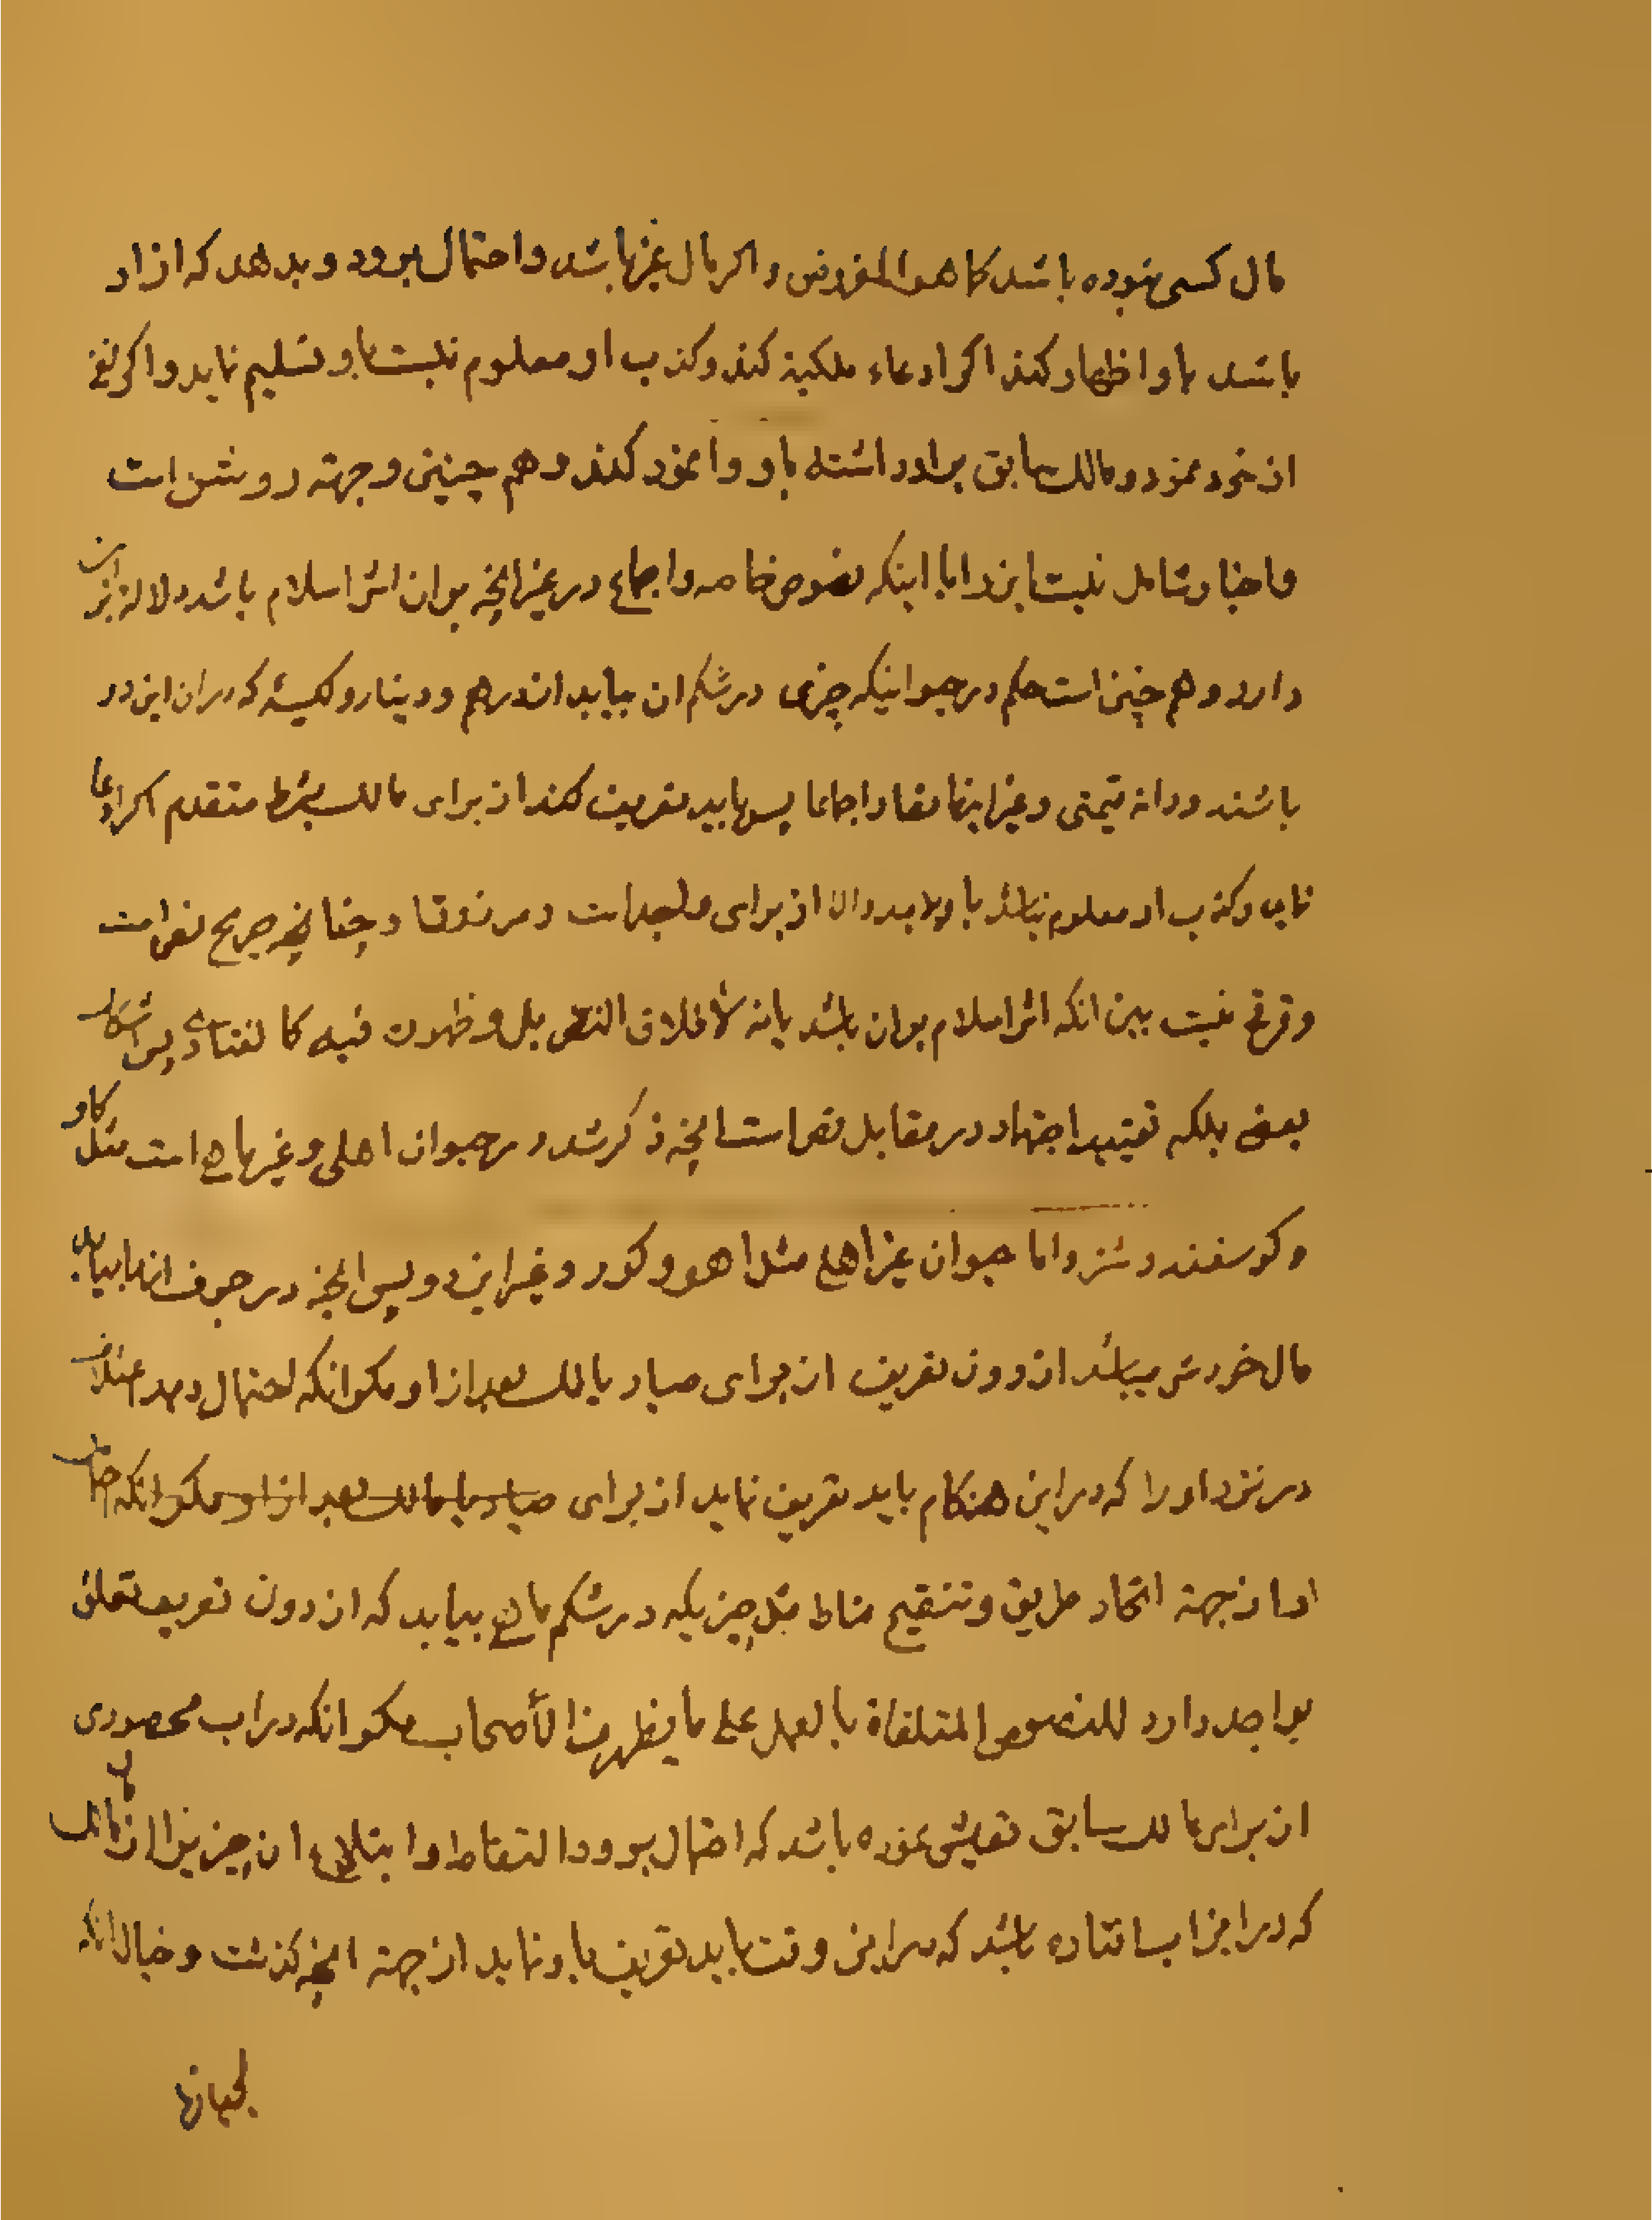 مال کسی نبوده باشد کما هو المفروض و اکر مال غیر باشد و احتمال برود و بدهد که از او
باشد باو اظهار کند اکر ادعاء ملکیة کند و کذب او معلوم نیست باو تسلیم نماید و اکر نفی
از خود نمود و مالک سابق بر او داشته باو وانمود کند و هم چنین وجهة روشن است
و اخبار شامل نیست این را با اینکه نصوص خاصه و اجماع در غیر انچه بران اثر اسلام باشد دلالة بر ان
دارد و هم چنین است حکم در حیوانیکه چیزی در شکم ان بیابد از درهم و دینار و کیسهٔ که در ان این دو
باشند و دانه قیمتی و غیر اینها نصا و اجماعا پس باید تعریف کند از برای مالک بشرط متقدم اکر ادعا
نماید و کذب او معلوم نباشد باو بدهد و الا از برای واجد است در نزد ما چنانچه صریح نص است
و فرقی نیست بین انکه اثر اسلام بران باشد یا نه لأطلاق النص بل و ظهوره فیه کما لفتاوی پس اشکال
بعض بلکه تقیید اجتهاد در مقابل نص است انچه ذکر شد در حیوان اهلی و غیرها است مثل کاو
و کوسفند و شتر و اما حیوان غیر اهلی مثل اهو و کور و غیر این دو پس انچه در جوف انها بیابد
مال خودش میباشد از دون تعریف از برای صیاد یا مالک بعد از او مکر انکه احتمال دهد اعتلاف
در نزد او را که در این هنکام باید تعریف نماید از برای صیاد یا مالک بعد از او مکر انکه
او از جهة اتحاد طریق و تنقیح مناط مثل چیزیکه در شکم ماهی بیابد که از دون تعریف تعلق
بواجد دارد للنصوص المتلقاة بالعمل علی ما یظهر من الأصحاب مکر انکه در اب محصوری
از برای مالک سابق تعیش نموده باشد که احتمال برود التقاط و ابتلاع ان چیز را از مال
که در این اب افتاده باشد که در این وقت باید تعریف باو نماید از جهة انچه کذشت و خیال انکه